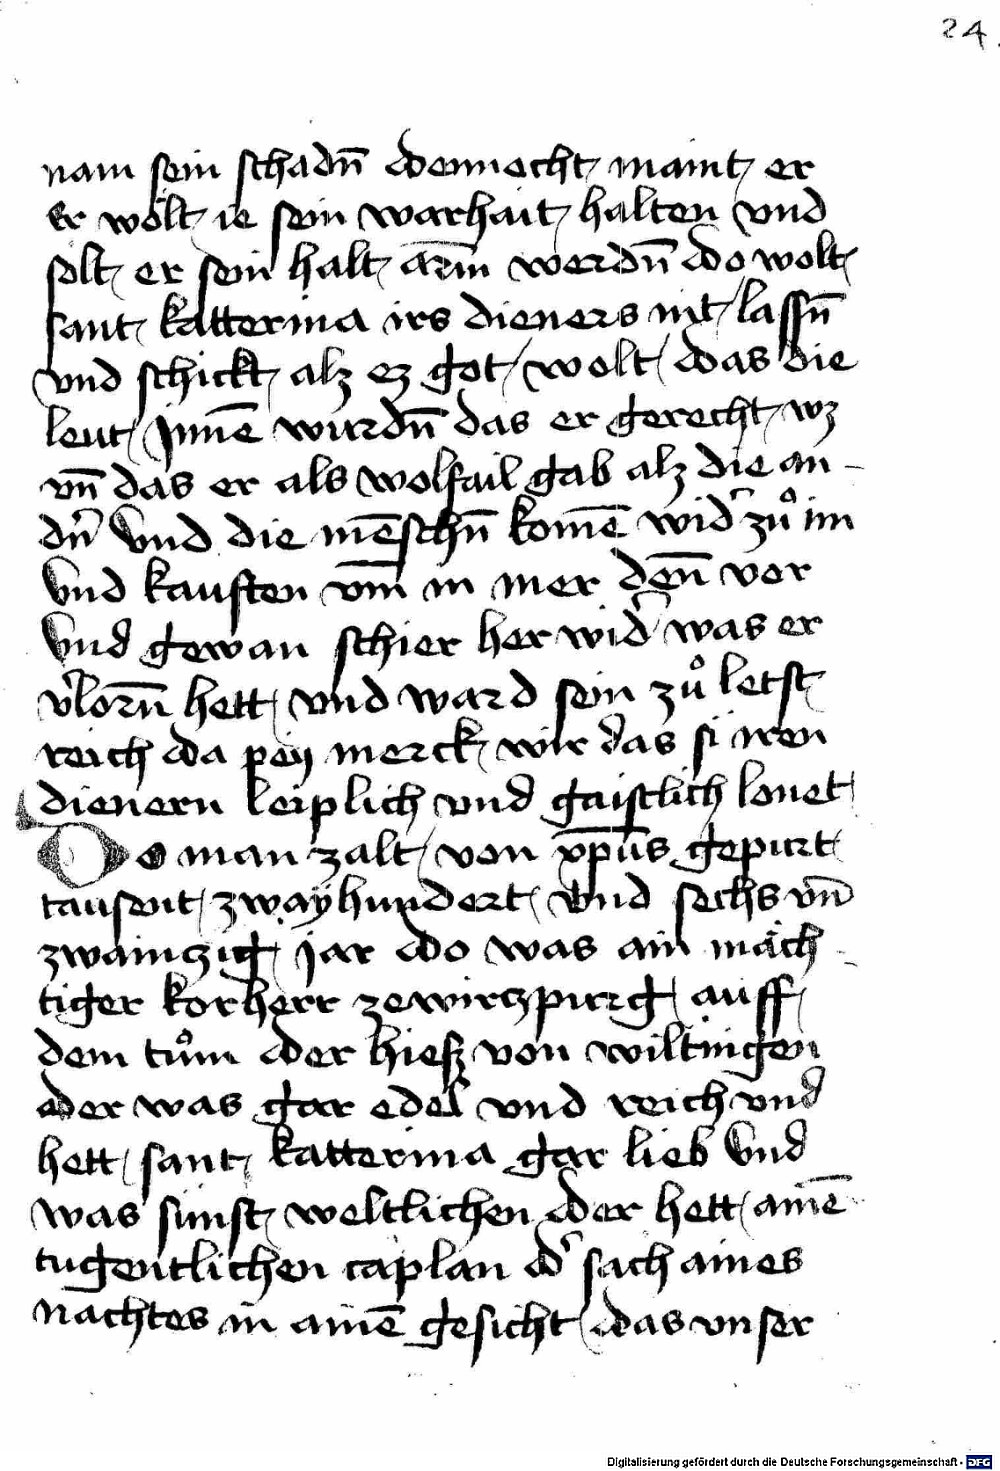 24.
nam sein schadn̄ dennocht maint er
Er wolt ie sein warhait halten vnd
solt er sein halt arm werdn̄ do wolt
sant katterina irs dieners nit lassn̄
vnd schickt alz ez got wolt das die
leut Jnnē wurdn̄ das er gerecht wz
vn̄ das er als wolfail gab alz die an-
dn̄ Vnd die mēschn̄ komē wid̕ zů im
Vnd kauften vm̄ in mer den̄ vor
Vnd gewan schier her wid̕ was er
v̕lorn̄ hett vnd ward sein zů letst
reich da peÿ merck wir das si iren
dienern leiplich vnd gaistlich lonet
Do man zalt von xp̄us gepurt
tausent zwaÿhundert Vnd sechs vn̄
zwainczig jar do was ain mäch-
tiger korherr ze wirczpurg auff
dem tům der hiesz von wiltingen
der was gar edel vnd reich vnd
hett sant katterina gar lieb Vnd
was sunst weltlichen der hett ainē
tugentlichen caplan d̕ sach aines
nachtes in ainē gesicht das vnser
Digitalisierung gefördert durch die Deutsche Forschungsgemeinschaft - DFG